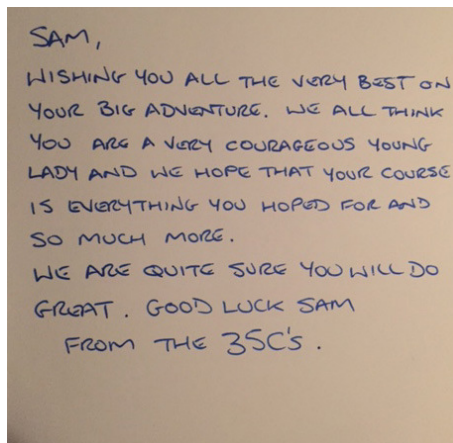 SAM,
WISHING YOU ALL THE VERY BEST ON
YOUR BIG ADVENTURE. WE ALL THINK
YOU ARE A VERY COURAGEOUS YOUNG
LADY AND WE HOPE THAT YOUR COURSE
IS EVERYTHING YOU HOPED FOR AND
SO MUCH MORE.
WE ARE QUITE SURE YOU WILL DO
GREAT. GOOD LUCK SAM
FROM THE 3SC'S.